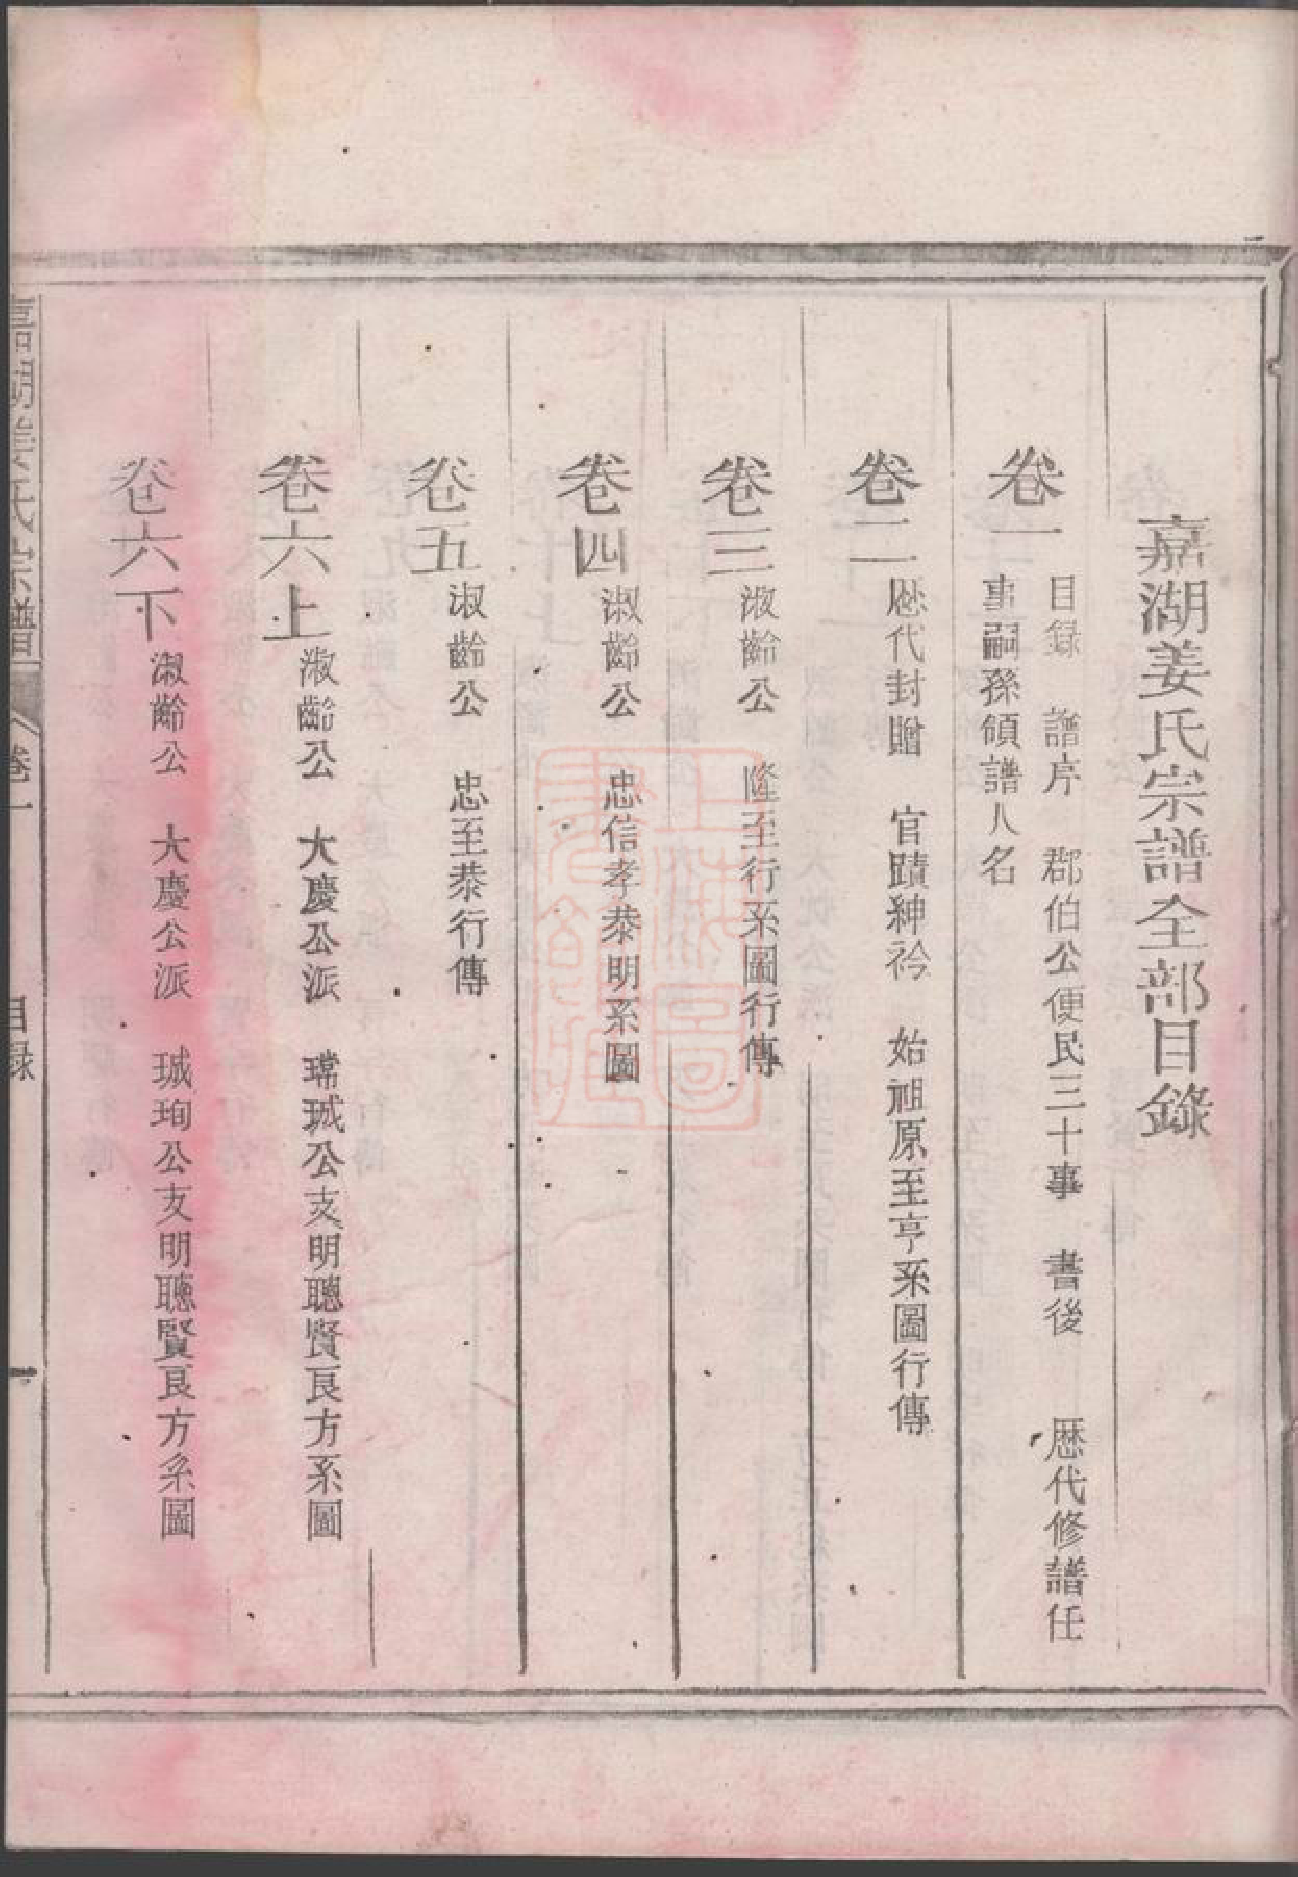 嘉湖姜氏宗譜全部目錄
卷一 目録 譜序 郡伯公便民三十事 書後 歴代修譜任
事嗣孫領譜人名
卷二 歴代封贈 官蹟紳衿 始祖原至亨系圖行傳
卷三 淑齡公 隆至行系圖行傳
卷四 淑齡公 忠信孝恭明系圖
卷五 淑齡公 忠至恭行傳
卷六上 淑齡公 大慶公派 瑺珹公支明聰賢良方系圖
卷六下 淑齡公 大慶公派 珹珣公支明聰賢良方系圖
嘉湖姜氏宗譜 卷一 目録 一
上海圖書館藏